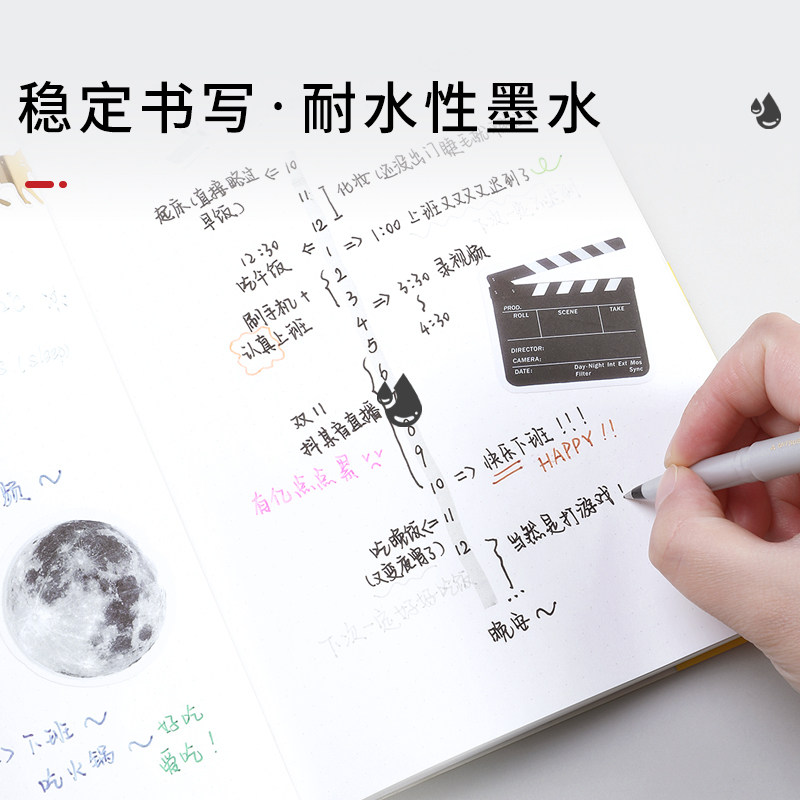 稳定书写·耐水性墨水
起床(直接略过
早饭)
<= 10
11
12
化妆(还没出门睫毛
=> 1:00 上班又又又又迟到了
12:30
吃午饭
<= 1
2
3
=> 3:30 录视频
4:30
刷手机+
认真上班
4
5
6
PROD.
ROLL
SCENE
TAKE
DIRECTOR:
CAMERA:
DATE:
Day-Night Int Ext Mos
Filter
Sync
双11
抖某音直播
8
9
10 => 快乐下班!!!
HAPPY!!
有亿点点累
吃晚饭<= 11
(又变夜宵了) 12
当然是打游戏!
...
晚安~
下次一定好好吃饭
频~
=> 下班~
吃火锅~
好吃
爱吃!